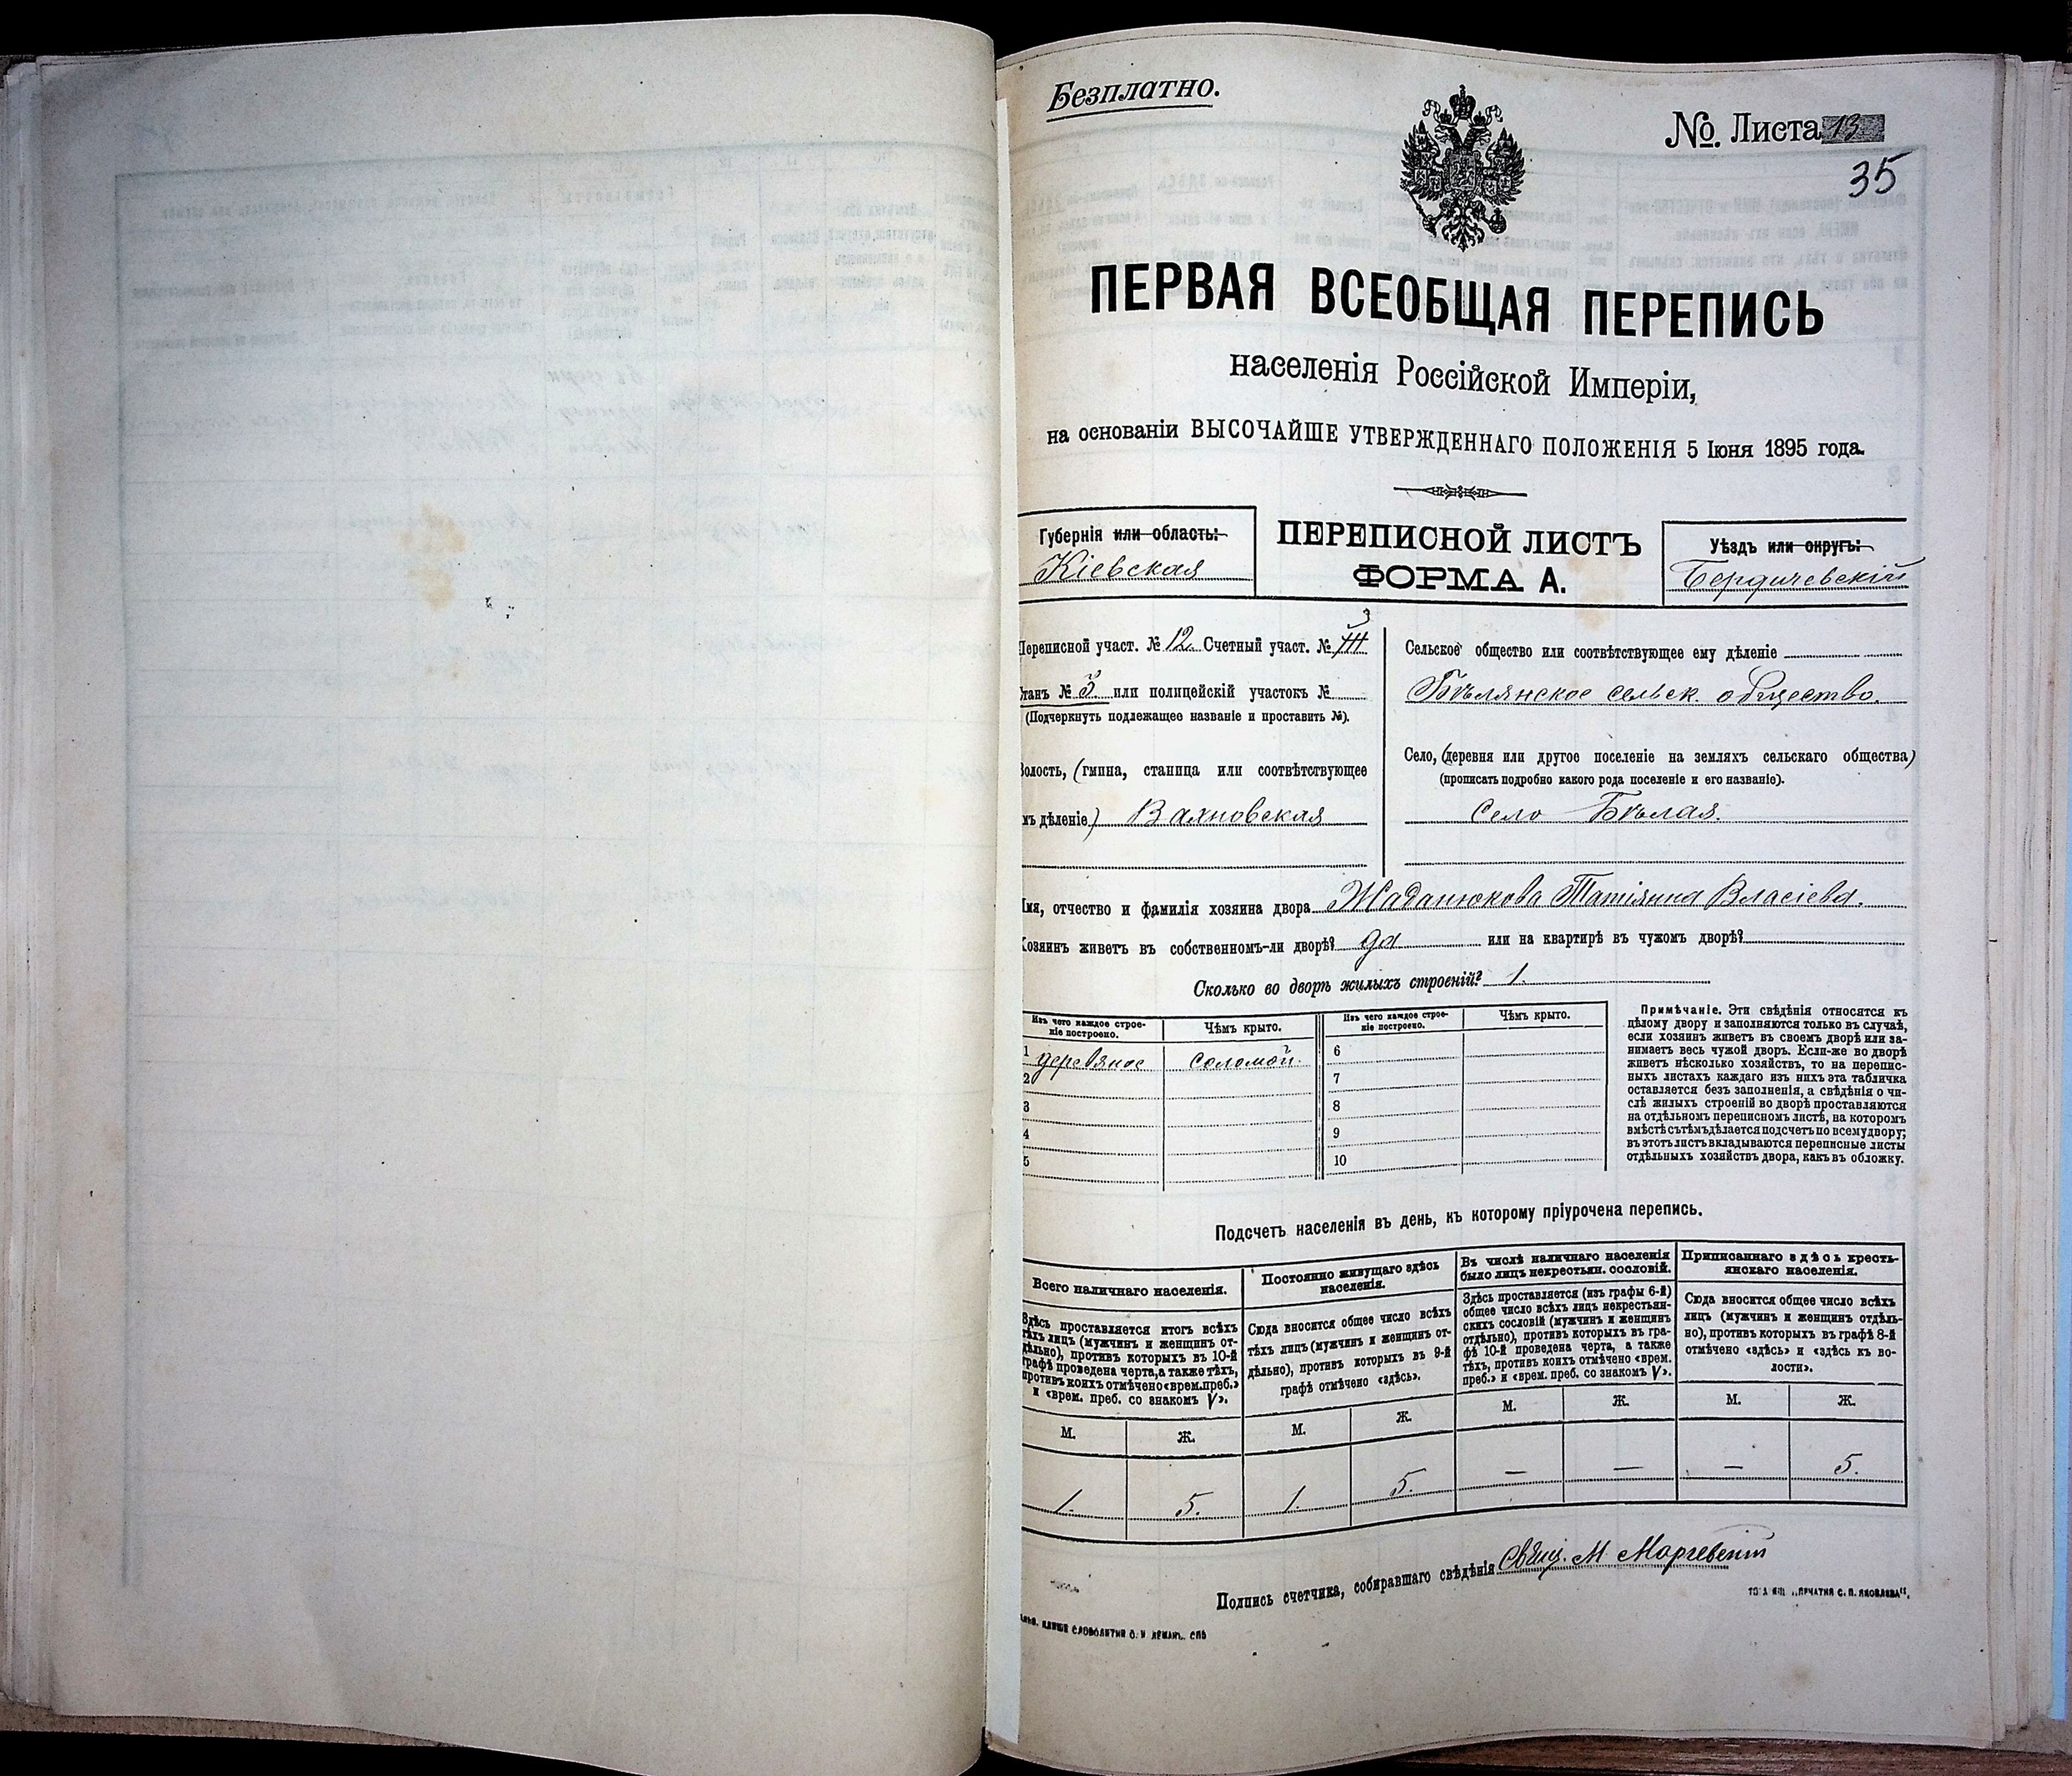 Безплатно.
№. Листа 13
35
ПЕРВАЯ ВСЕОБЩАЯ ПЕРЕПИСЬ
населенія Россійской Имперіи,
на основаніи ВЫСОЧАЙШЕ УТВЕРЖДЕННАГО ПОЛОЖЕНІЯ 5 Іюня 1895 года.
Губернія или область:
Кіевская
ПЕРЕПИСНОЙ ЛИСТЪ
ФОРМА А.
Уѣздъ или округъ:
Бердичевскій
Переписной участ. № 12. Счетный участ. № III 3
Станъ № 3. или полицейскій участокъ №
(Подчеркнуть подлежащее названіе и проставить №).
Волость, (гмина, станица или соотвѣтствующее
мъ дѣленіе) Вахновская
Сельское общество или соотвѣтствующее ему дѣленіе
Бѣлянское сельск. общество.
Село, (деревня или другое поселеніе на земляхъ сельскаго общества)
(прописать подробно какого рода поселеніе и его названіе).
Село Бѣлая.
Имя, отчество и фамилія хозяина двора Жаданюкова Татіяна Власіева.
Хозяинъ живетъ въ собственномъ-ли дворѣ? да или на квартирѣ въ чужомъ дворѣ?
Сколько во дворѣ жилыхъ строеній? 1.
Изъ чего каждое строе-
ніе построено.
Чѣмъ крыто.
Изъ чего каждое строе-
ніе построено.
Чѣмъ крыто.
1 деревяное соломой. 6
2 7
3 8
4 9
5 10
Примѣчаніе. Эти свѣдѣнія относятся къ
цѣлому двору и заполняются только въ случаѣ,
если хозяинъ живетъ въ своемъ дворѣ или за-
нимаетъ весь чужой дворъ. Если-же во дворѣ
живетъ нѣсколько хозяйствъ, то на перепис-
ныхъ листахъ каждаго изъ нихъ эта табличка
оставляется безъ заполненія, а свѣдѣнія о чи-
слѣ жилыхъ строеній во дворѣ проставляются
на отдѣльномъ переписномъ листѣ, на которомъ
вмѣстѣ съ тѣмъ дѣлается подсчетъ по всему двору;
въ этотъ листъ вкладываются переписные листы
отдѣльныхъ хозяйствъ двора, какъ въ обложку.
Подсчетъ населенія въ день, къ которому пріурочена перепись.
Всего наличнаго населенія.
Здѣсь проставляется итогъ всѣхъ
тѣхъ лицъ (мужчинъ и женщинъ от-
дѣльно), противъ которыхъ въ 10-й
графѣ проведена черта, а также тѣхъ,
противъ коихъ отмѣчено «врем. преб.»
и «врем. преб. со знакомъ V».
Постоянно живущаго здѣсь
населенія.
Сюда вносится общее число всѣхъ
тѣхъ лицъ (мужчинъ и женщинъ от-
дѣльно), противъ которыхъ въ 9-й
графѣ отмѣчено «здѣсь».
Въ числѣ наличнаго населенія
было лицъ некрестьян. сословій.
Здѣсь проставляется (изъ графы 6-й)
общее число всѣхъ лицъ некрестьян-
скихъ сословій (мужчинъ и женщинъ
отдѣльно), противъ которыхъ въ гра-
фѣ 10-й проведена черта, а также
тѣхъ, противъ коихъ отмѣчено «врем.
преб.» и «врем. преб. со знакомъ V».
Приписаннаго здѣсь кресть-
янскаго населенія.
Сюда вносится общее число всѣхъ
лицъ (мужчинъ и женщинъ отдѣль-
но), противъ которыхъ въ графѣ 8-й
отмѣчено «здѣсь» и «здѣсь къ во-
лости».
М. Ж. М. Ж. М. Ж. М. Ж.
1. 5. 1. 5. — — — 5.
Подпись счетчика, собиравшаго свѣдѣнія Свящ. М. Маргевскій